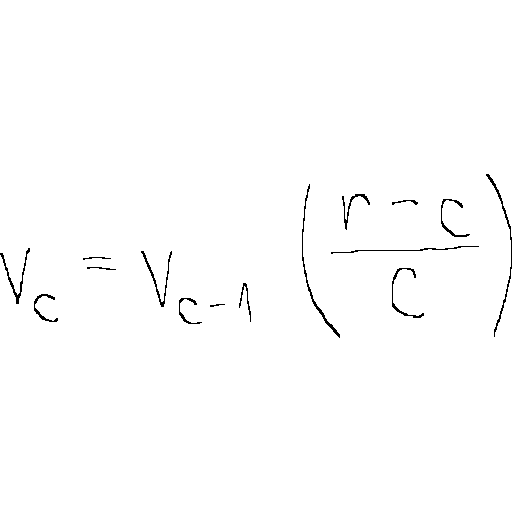 $v_c = v_{c-1} \left( \frac{r-c}{c} \right)$